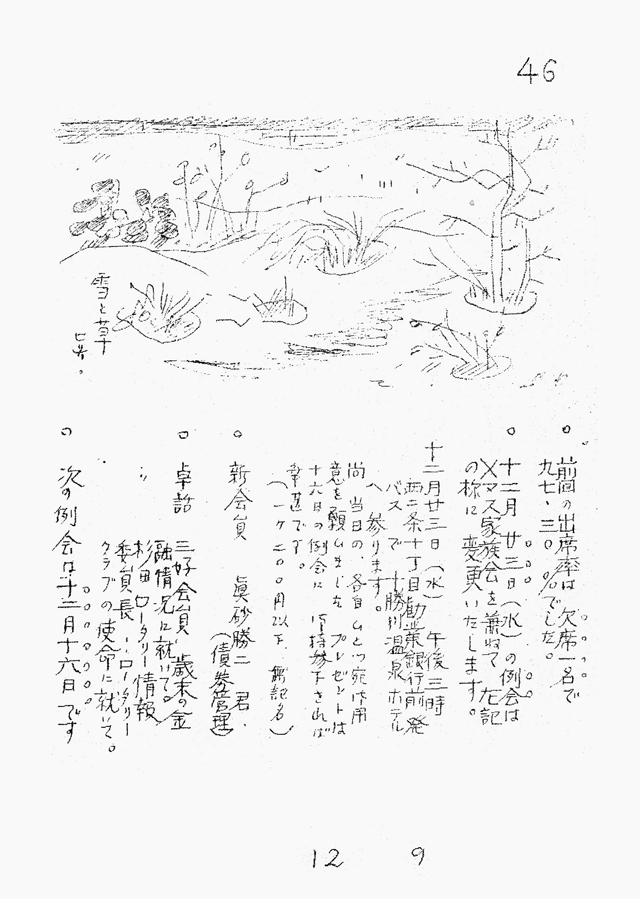 46
雪と草
○ 前回の出席率は 欠席一名で
九七.三〇%でした。
○ 十二月廿三日(水)の例会は
Xマス家族会を兼ねて 左記
の様に変更いたします。
十二月廿三日(水) 午後三時
西二条十丁目勧業銀行前発
バスで 十勝川温泉ホテル
へ 参ります。
尚 当日の、各自ムとつ宛御用
意を願ムました プレゼントは
十六日の例会に 御持参下されば
幸甚です。
(一ケ二〇〇円以下 無記名)
○ 新会員 眞砂勝二 君.
(債券管理)
○ 卓話 三好会員 歳末の金
融情況に就いて。
〃 杉田ロータリー情報
委員長…ロータリー
クラブの使命に就いて。
○ 次の例会は十二月十六日です
12 9